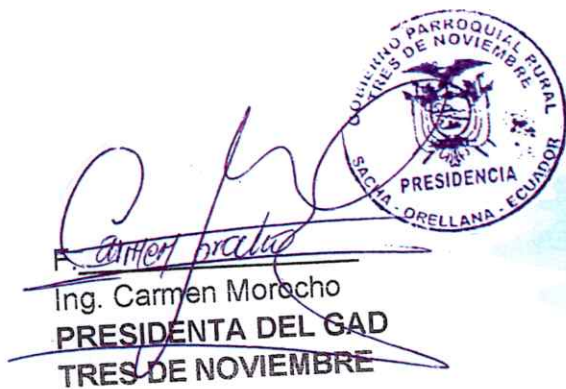 GOBIERNO PARROQUIAL RURAL
TRES DE NOVIEMBRE
PRESIDENCIA
SACHA - ORELLANA - ECUADOR
F. Carmen Morocho
Ing. Carmen Morocho
PRESIDENTA DEL GAD
TRES DE NOVIEMBRE